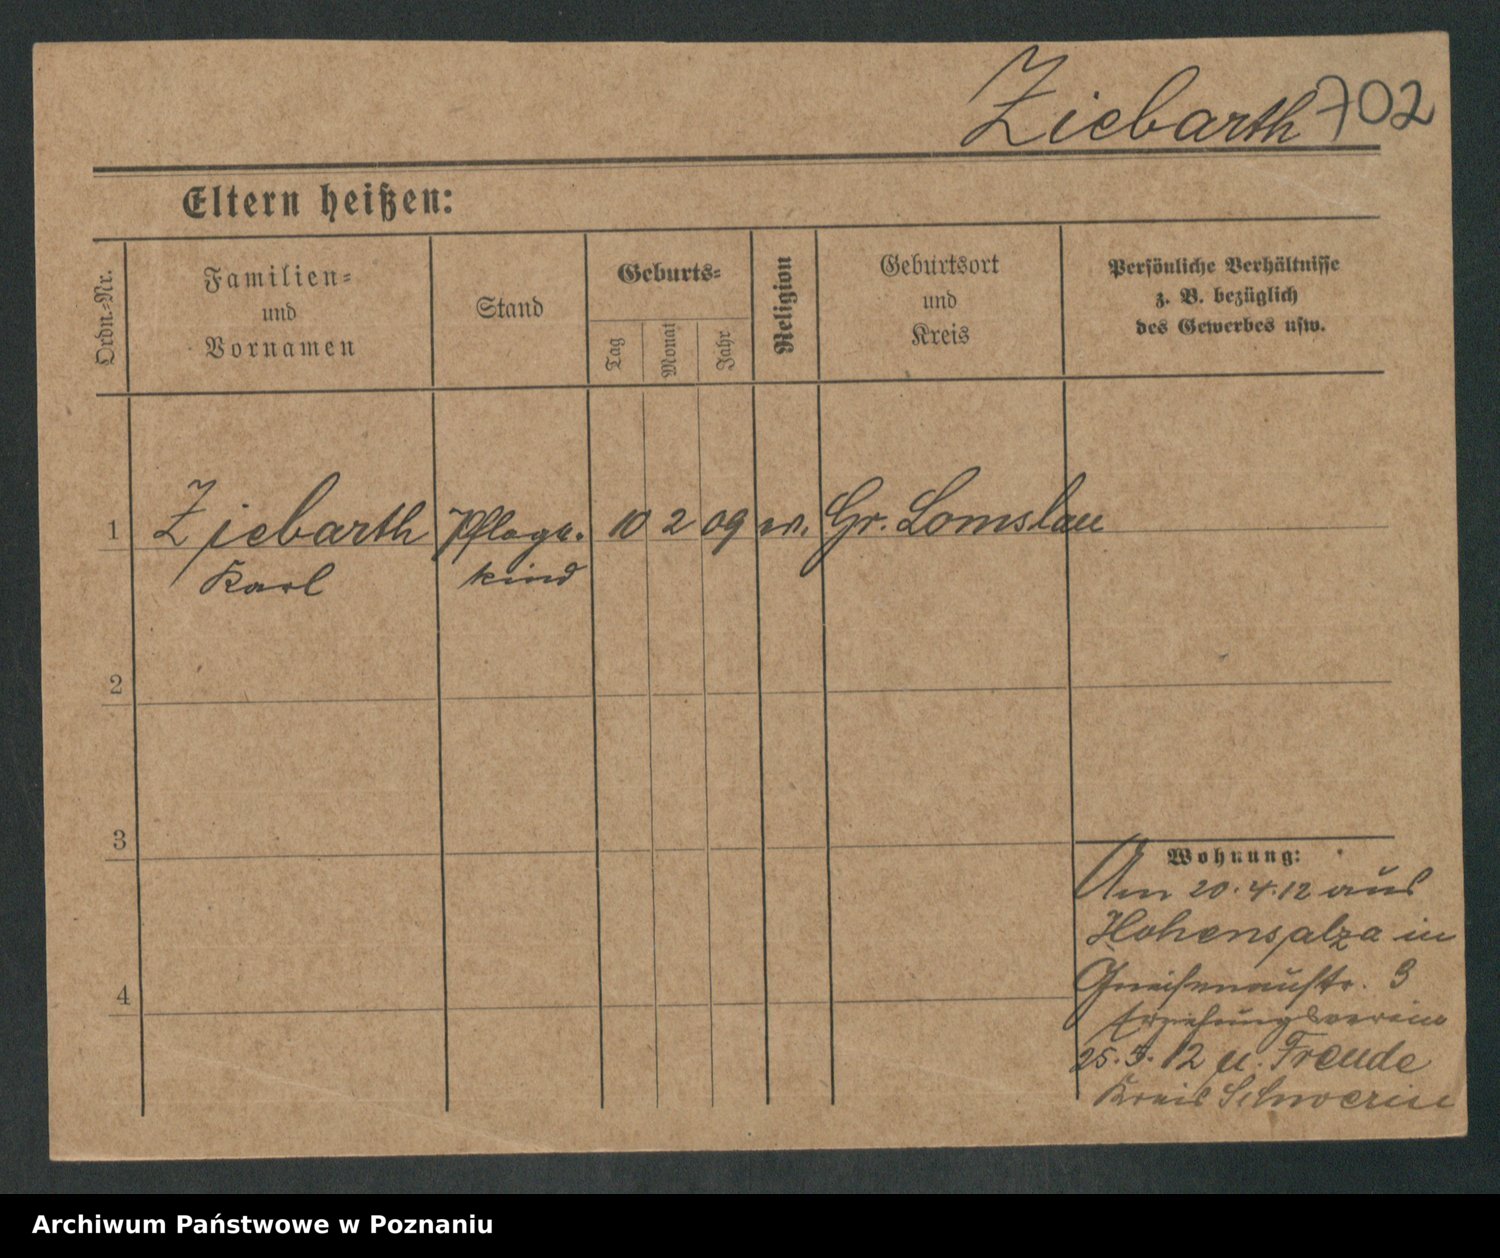 Ziebarth 702
Eltern heißen:
Ordn.-Nr.
Familien-
und
Vornamen
Stand
Geburts-
Tag
Monat
Jahr
Religion
Geburtsort
und
Kreis
Persönliche Verhältnisse
z. B. bezüglich
des Gewerbes usw.
1 Ziebarth Pflege- 10 2 09 ev. Gr. Lomslau
Karl kind
2
3
4
Wohnung:
Am 20.4.12 aus
Hohensalza in
Gneisenaustr. 3
Erziehungsverein
25.5.12 n. Freude
Kreis Schwerin
Archiwum Państwowe w Poznaniu